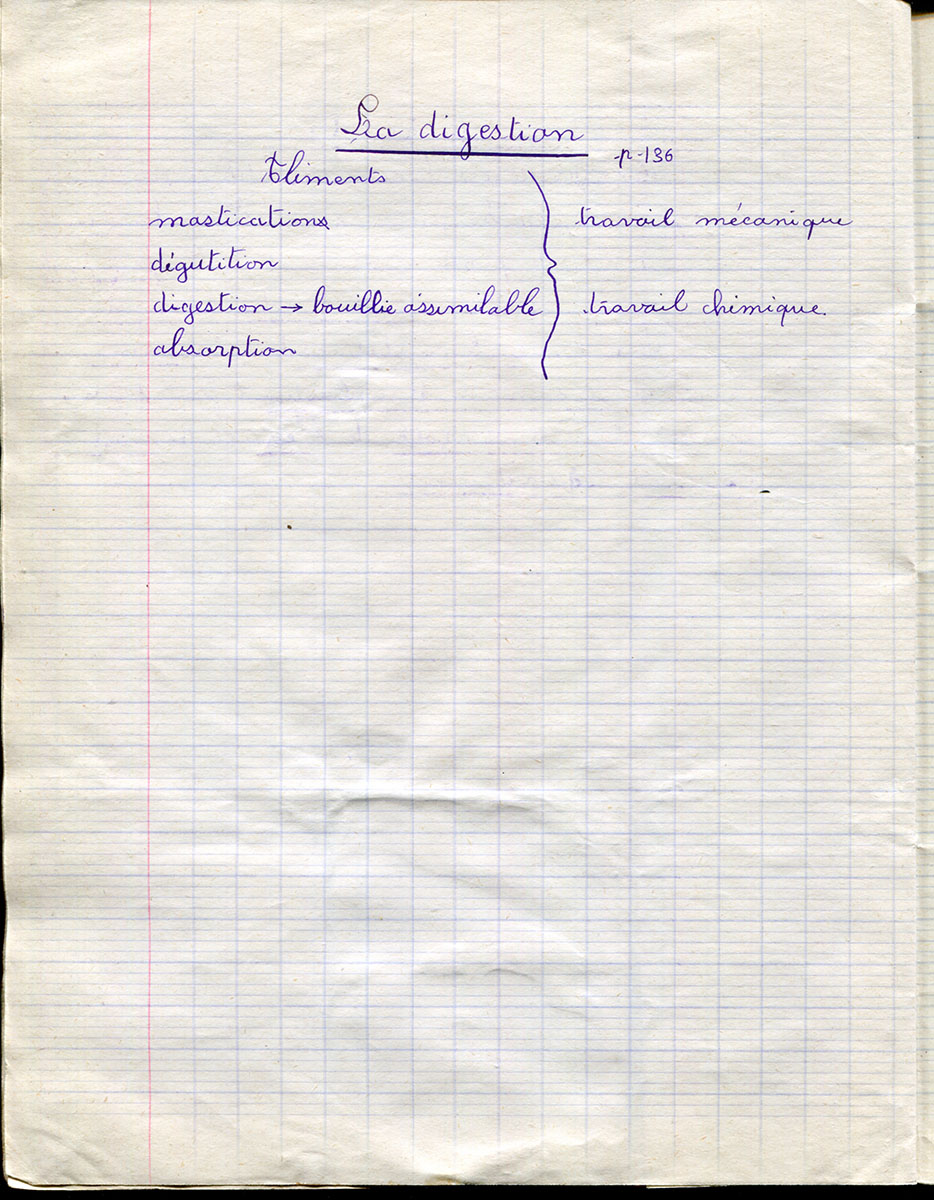 La digestion
p-136
Aliments
mastications
dégutition
digestion → bouillie assimilable
absorption
travail mécanique
travail chimique.